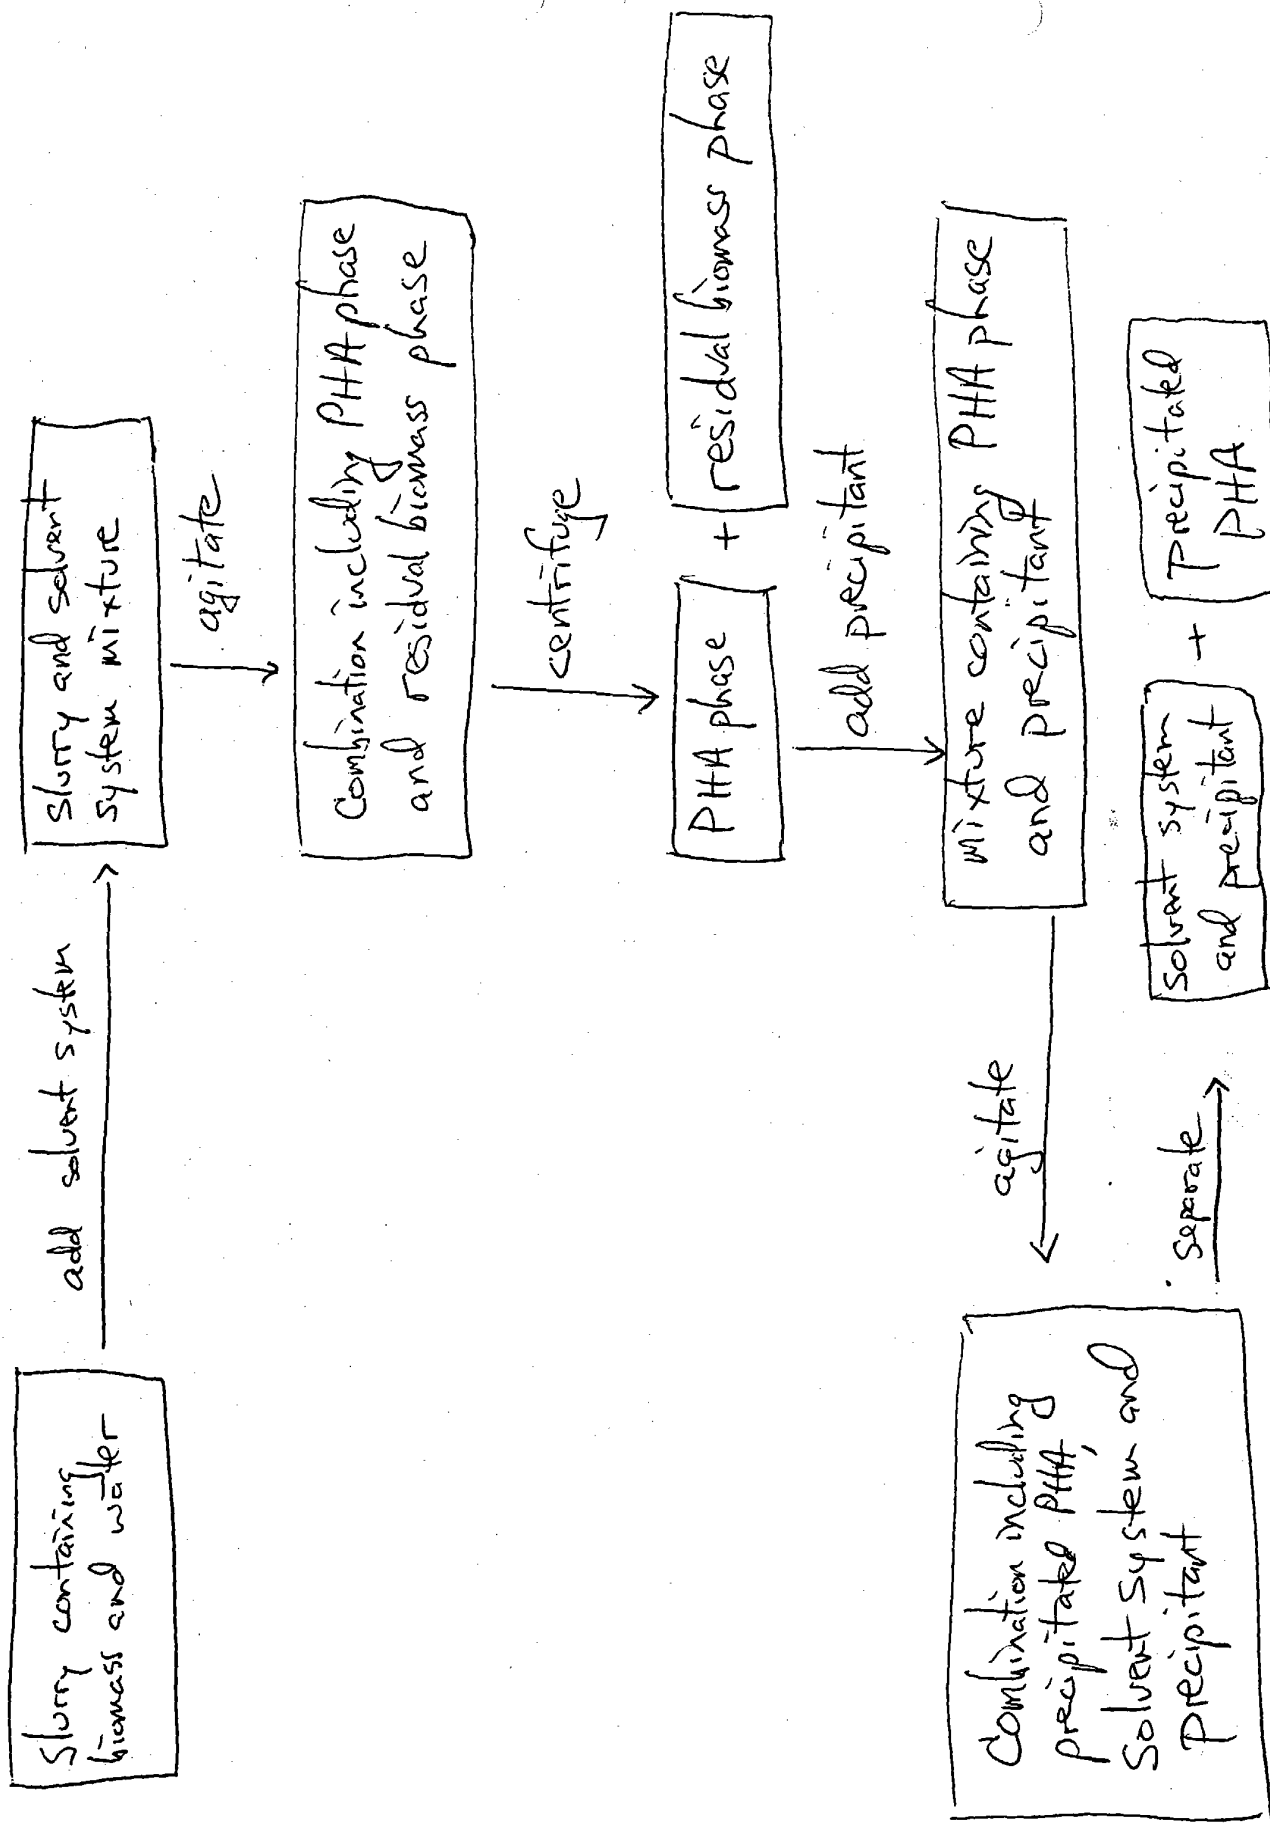 Slurry containing
biomass and water
add solvent system
Slurry and solvent
system mixture
agitate
Combination including PHA phase
and residual biomass phase
centrifuge
PHA phase
+
residual biomass phase
add precipitant
Mixture containing PHA phase
and precipitant
agitate
Combination including
precipitated PHA,
Solvent System and
Precipitant
separate
Solvent system
and precipitant
+
Precipitated
PHA